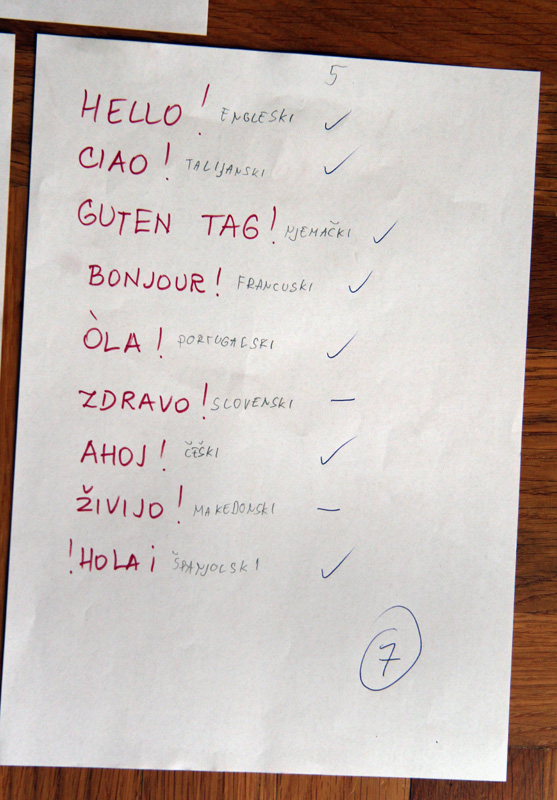 5
HELLO! ENGLESKI ✓
CIAO! TALIJANSKI ✓
GUTEN TAG! NJEMAČKI ✓
BONJOUR! FRANCUSKI ✓
ÒLA! PORTUGALSKI ✓
ZDRAVO! SLOVENSKI –
AHOJ! ČEŠKI ✓
ŽIVIJO! MAKEDONSKI –
!HOLA¡ ŠPANJOLSKI ✓
7